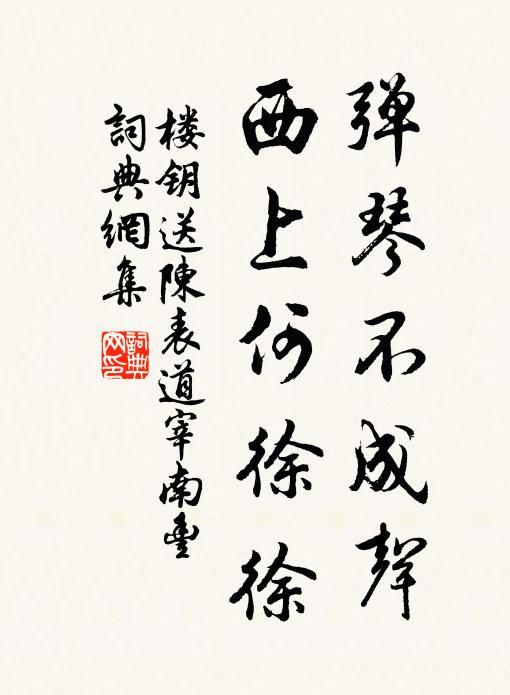 弹琴不成聲
西上何徐徐
楼钥送陳表道宰南豊
詞典網集
詞典網印